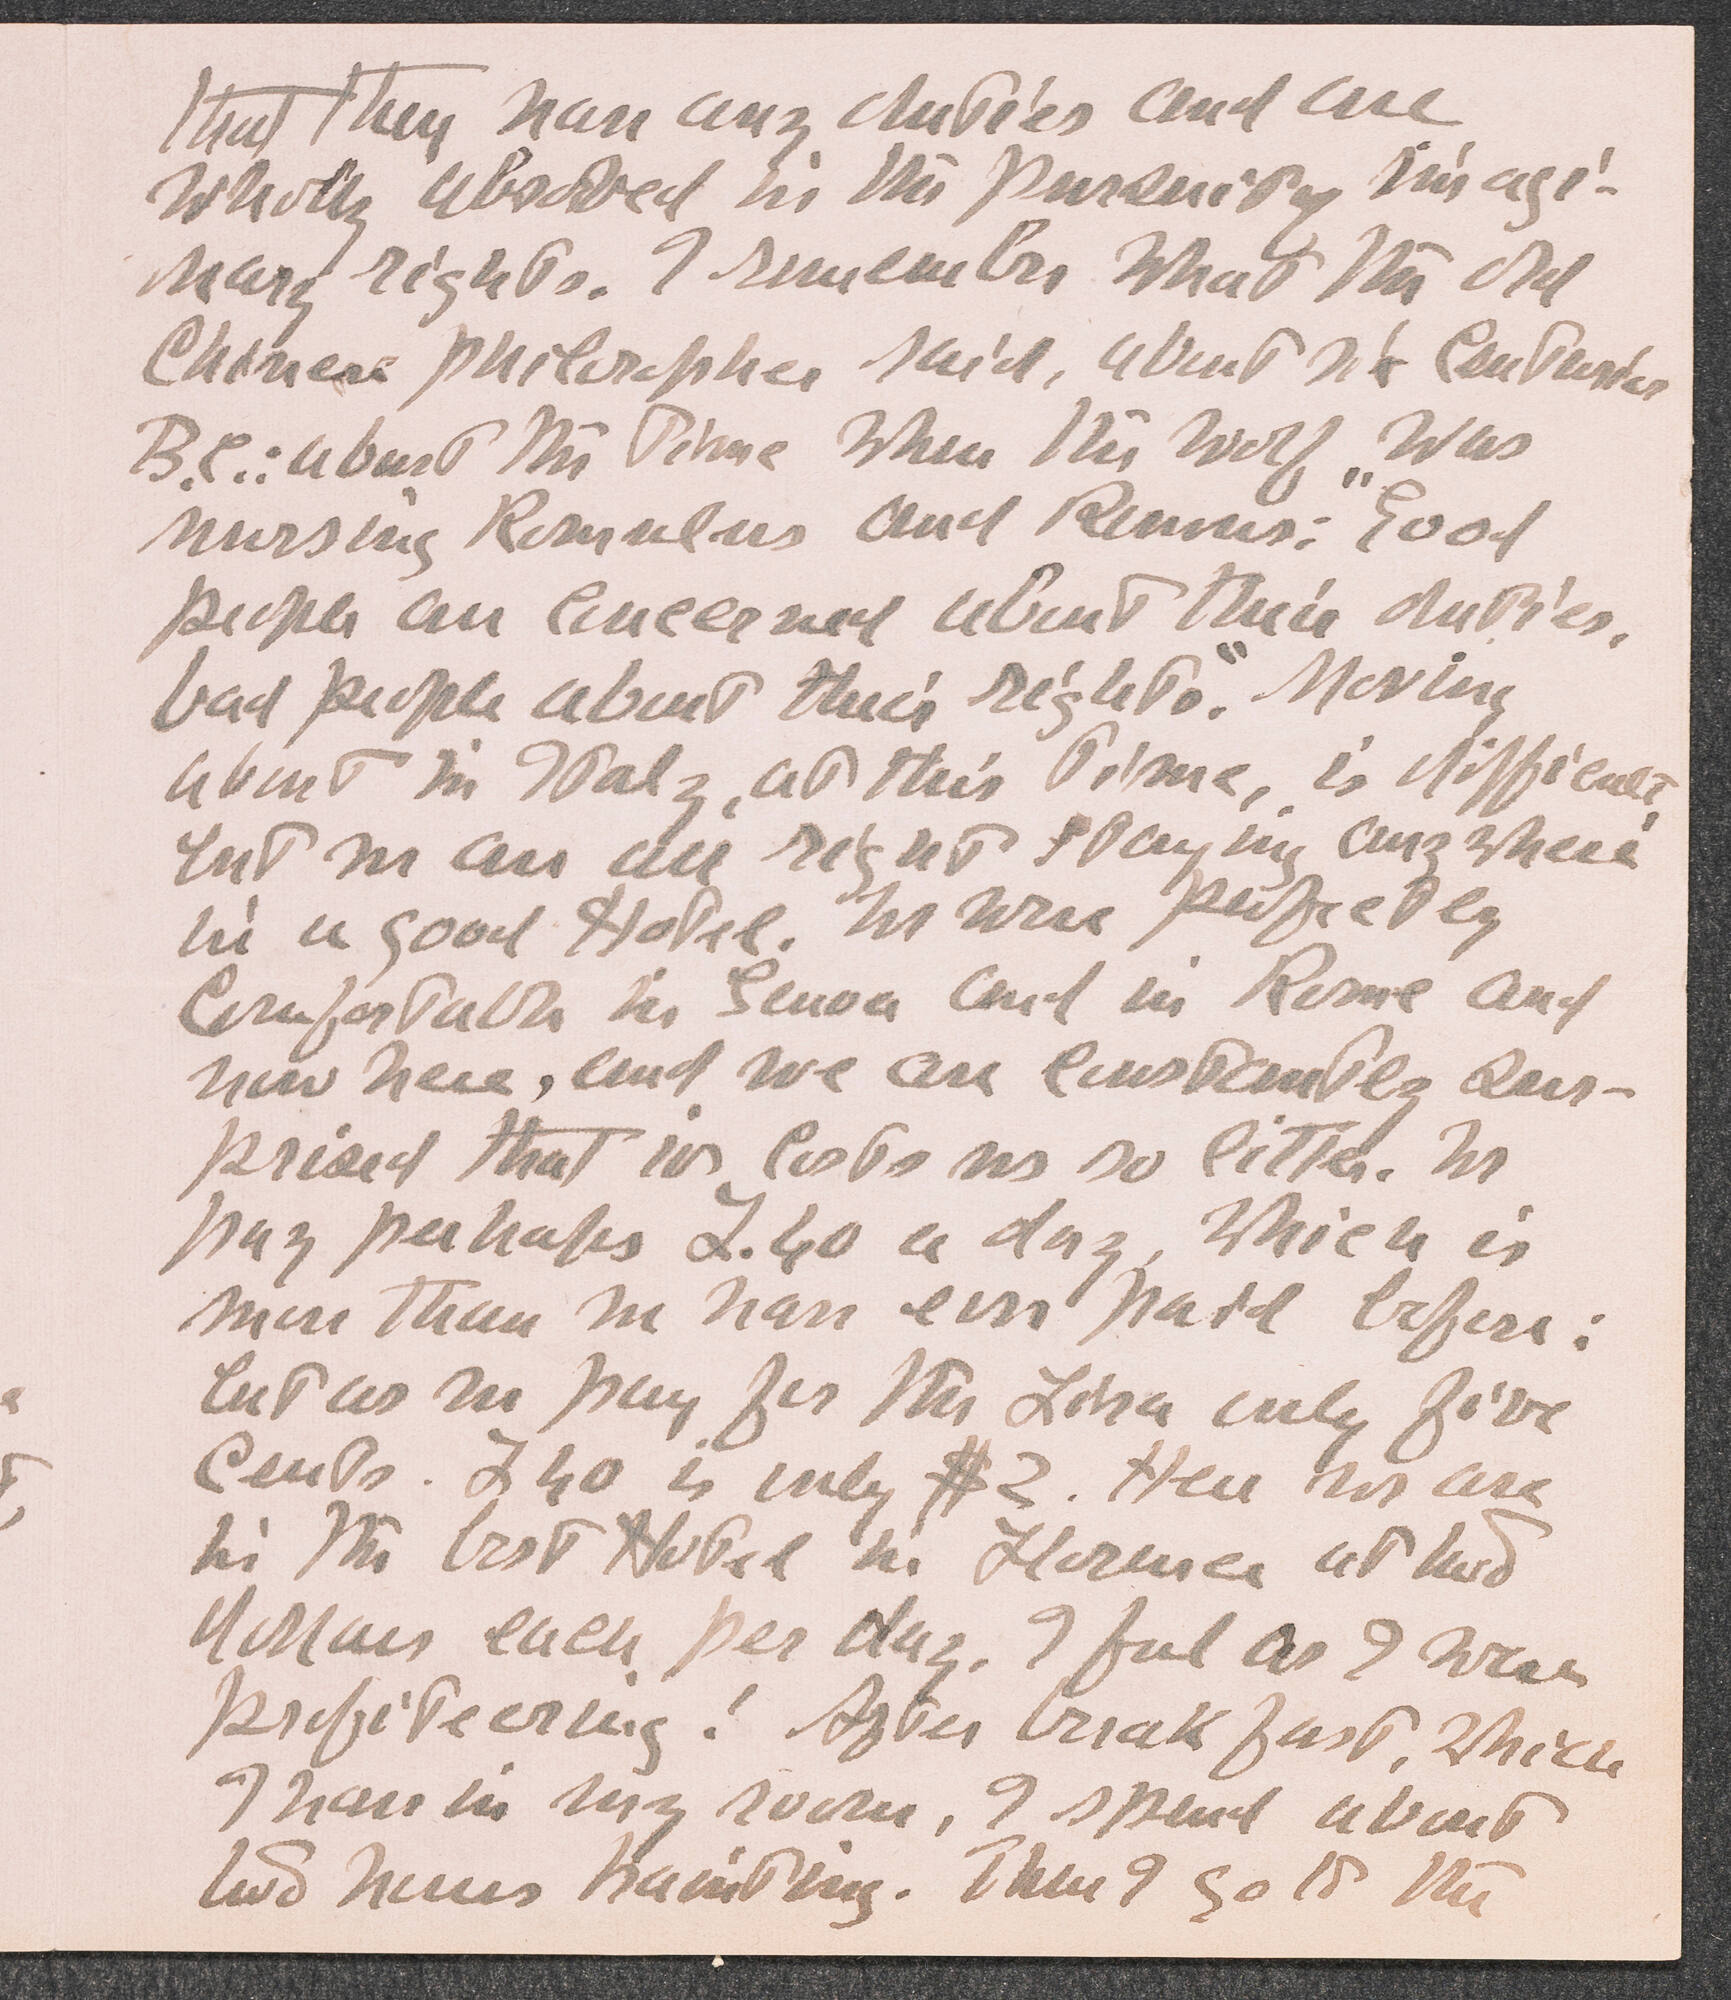 that they have any duties and are
wholly absorbed in the pursuit of imagi-
nary rights. I remember what the old
Chinese philosopher said, about six Centuries
B.C.: about the time when the wolf was
nursing Romulus and Remus: "Good
people are concerned about their duties,
bad people about their rights." Moving
about in Italy, at this time, is difficult,
but we are all right staying anywhere
in a good Hotel. We were perfectly
Comfortable in Genoa and in Rome and
now here, and we are constantly sur-
prised that it costs us so little. We
pay perhaps L.40 a day, which is
more than we have ever paid before:
but as we pay for the Lira only five
Cents. L40 is only $2. Here we are
in the best Hotel in Florence at two
dollars each per day. I feel as I were
profiteering! After breakfast, which
I have in my room, I spend about
two hours painting. Then I go to the